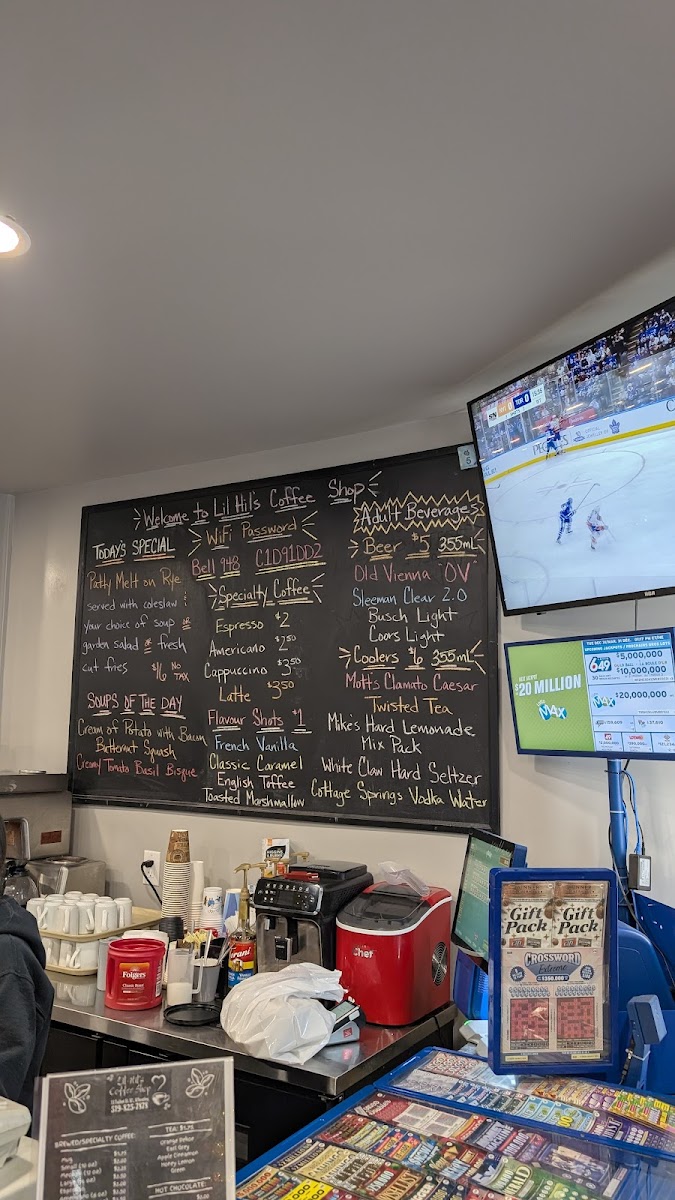 Welcome to Lil Hil's Coffee Shop
TODAY'S SPECIAL
Patty Melt on Rye
served with coleslaw &
your choice of soup or
garden salad or fresh
cut fries $16 NO TAX
SOUPS OF THE DAY
Cream of Potato with Bacon
Butternut Squash
Creamy Tomato Basil Bisque
WiFi Password
Bell 948 C1D91DD2
Specialty Coffee
Espresso $2
Americano $2.50
Cappuccino $3.50
Latte $3.50
Flavour Shots $1
French Vanilla
Classic Caramel
English Toffee
Toasted Marshmallow
Adult Beverages
Beer $5 355mL
Old Vienna "OV"
Sleeman Clear 2.0
Busch Light
Coors Light
Coolers $6 355mL
Mott's Clamato Caesar
Twisted Tea
Mike's Hard Lemonade
Mix Pack
White Claw Hard Seltzer
Cottage Springs Vodka Water
TOR 0
RCA
$20 MILLION
MAX
649
$5,000,000
$10,000,000
MAX
$20,000,000
Folgers
Chef
Gift Pack
Gift Pack
CROSSWORD
Extreme
Lil Hil's
Coffee Shop
BREWED/SPECIALTY COFFEE:
TEA:
Orange Pekoe
Earl Grey
Apple Cinnamon
Honey Lemon
Green
HOT CHOCOLATE: